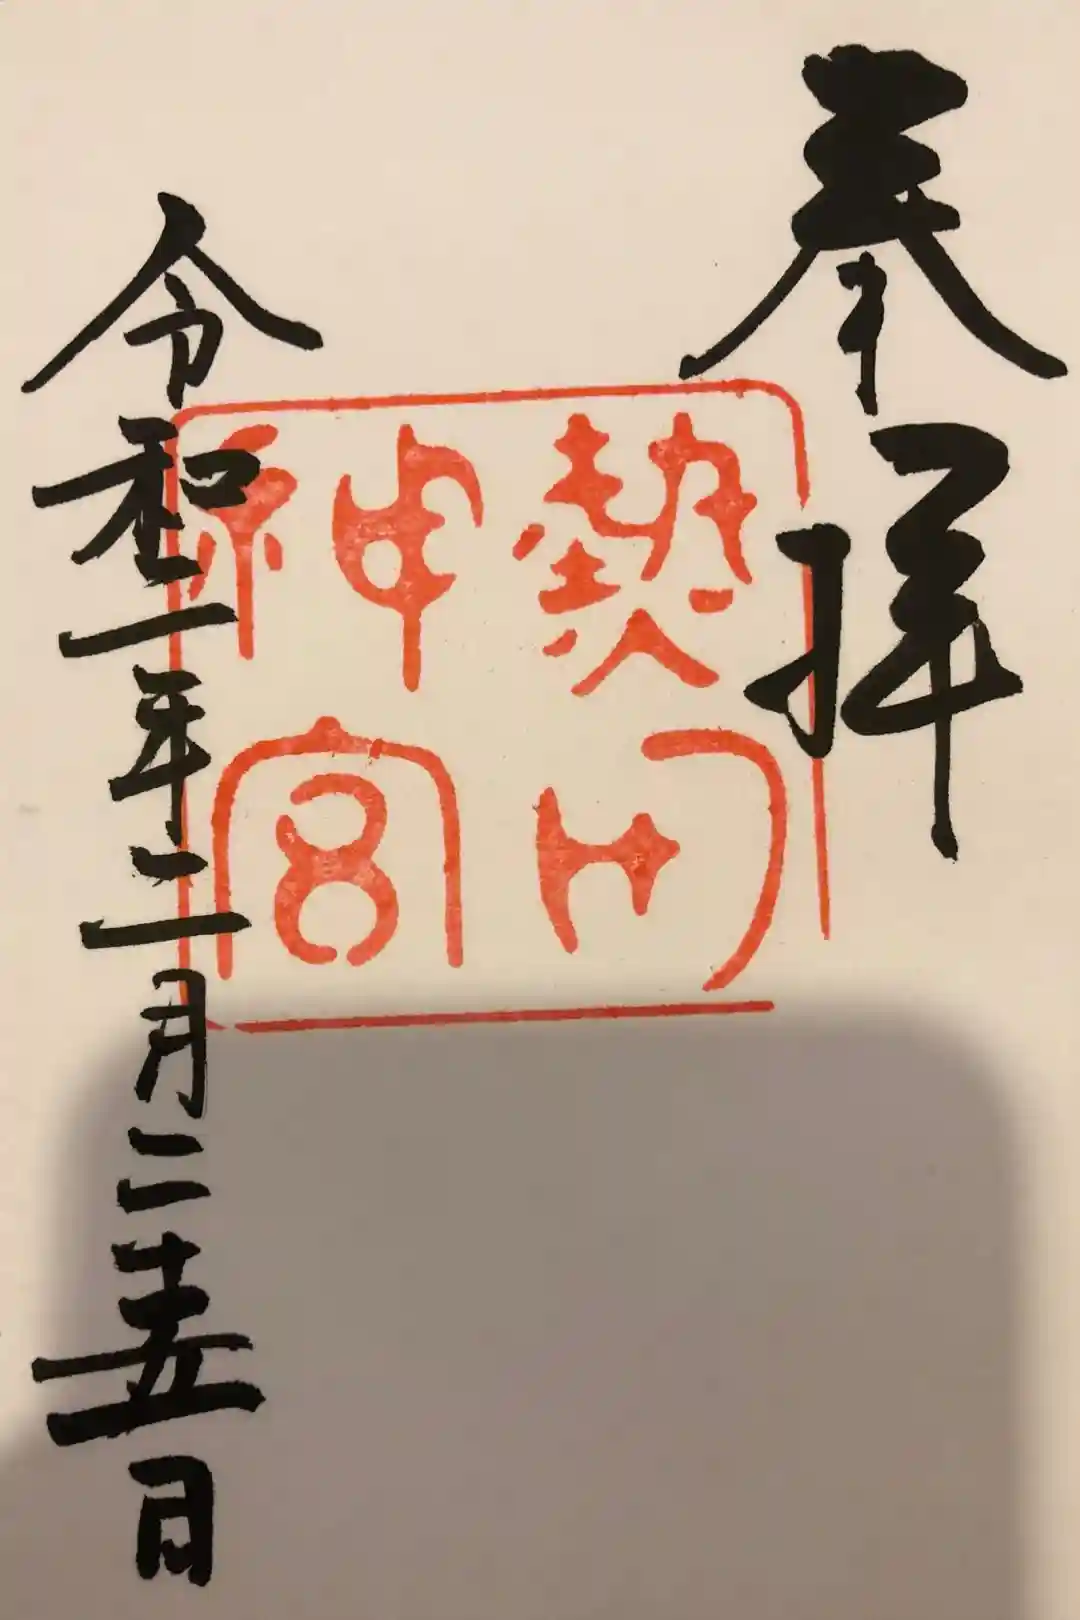 奉拝
熱田
神宮
令和二年二月二十五日